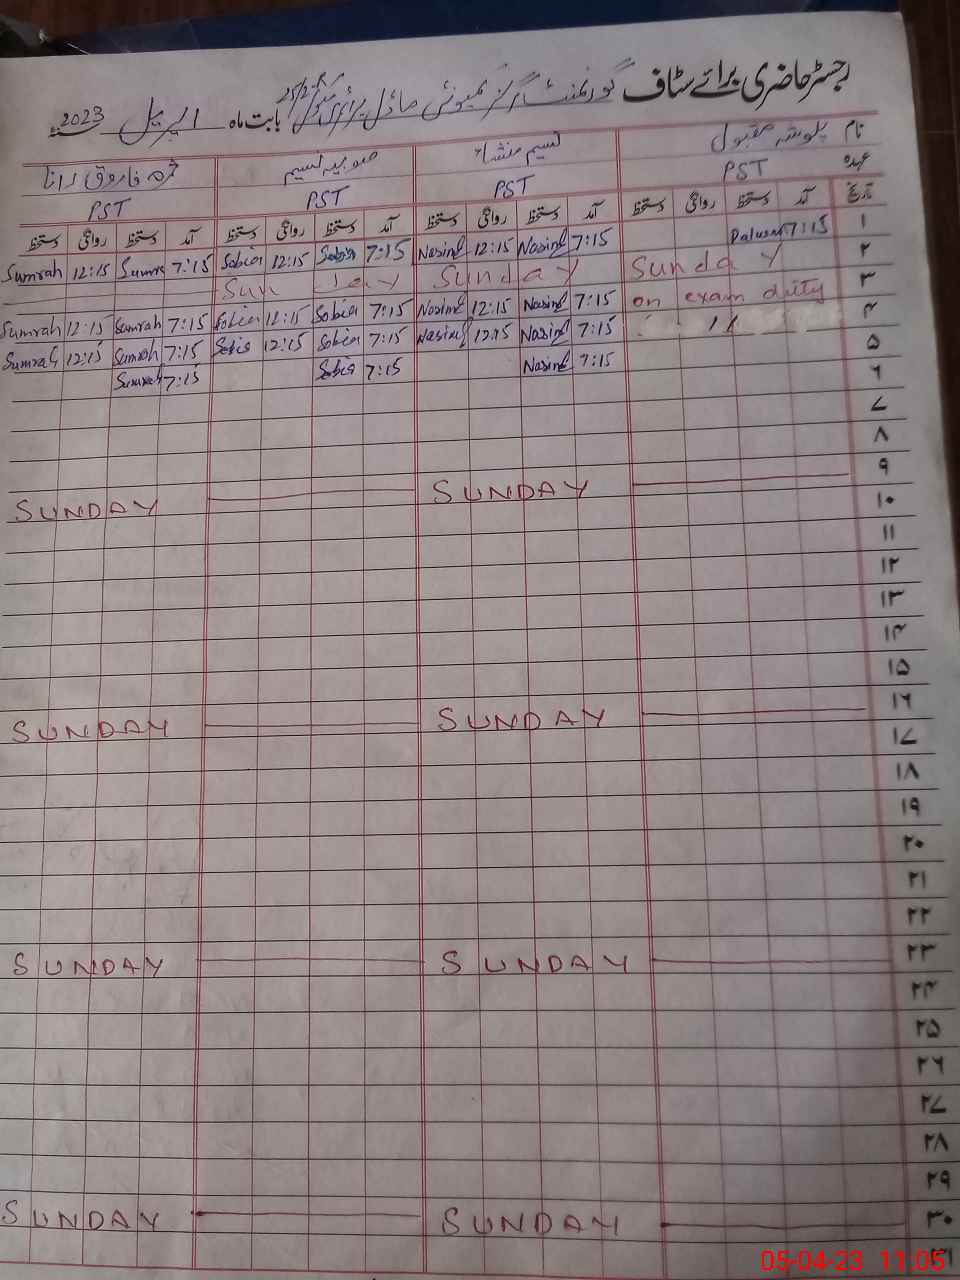 رجسٹر حاضری برائے سٹاف گورنمنٹ گرلز کمیونٹی ماڈل پرائمری سکول بابت ماہ اپریل 2023
نام پلوشہ مقبول نسیم منشاء صوبیہ نسیم ثمرہ فاروق رانا
عہدہ PST PST PST PST
تاریخ آمد دستخط روانگی دستخط آمد دستخط روانگی دستخط آمد دستخط روانگی دستخط آمد دستخط روانگی دستخط
۱ 7:15 Palusha 7:15 Nasim 12:15 Nasim 7:15 Sobia 12:15 Sobia 7:15 Sumrah 12:15 Sumrah
۲ Sunday Sunday Sunday
۳ on exam duty 7:15 Nasim 12:15 Nasim 7:15 Sobia 12:15 Sobia 7:15 Sumrah 12:15 Sumrah
۴ 〃 7:15 Nasim 12:15 Nasim 7:15 Sobia 12:15 Sobia 7:15 Sumrah 12:15 Sumrah
۵ 7:15 Nasim 7:15 Sobia 7:15 Sumrah
۶
۷
۸
۹ SUNDAY SUNDAY
۱۰
۱۱
۱۲
۱۳
۱۴
۱۵
۱۶ SUNDAY SUNDAY
۱۷
۱۸
۱۹
۲۰
۲۱
۲۲
۲۳ SUNDAY SUNDAY
۲۴
۲۵
۲۶
۲۷
۲۸
۲۹
۳۰ SUNDAY SUNDAY
۳۱
05-04-23 11:05